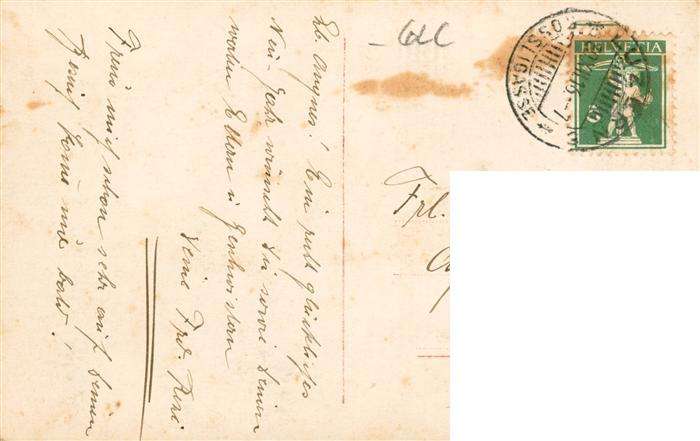 Lb. Augna! Ein recht glückliches
Neu-Jahr wünscht Dir sowie Deinen
werten Eltern u. Geschwistern
Deine Frd. Rosi.
Freue mich schon sehr auf Deinen
Besuch komme nur bald!
-60C
HELVETIA
Frl.